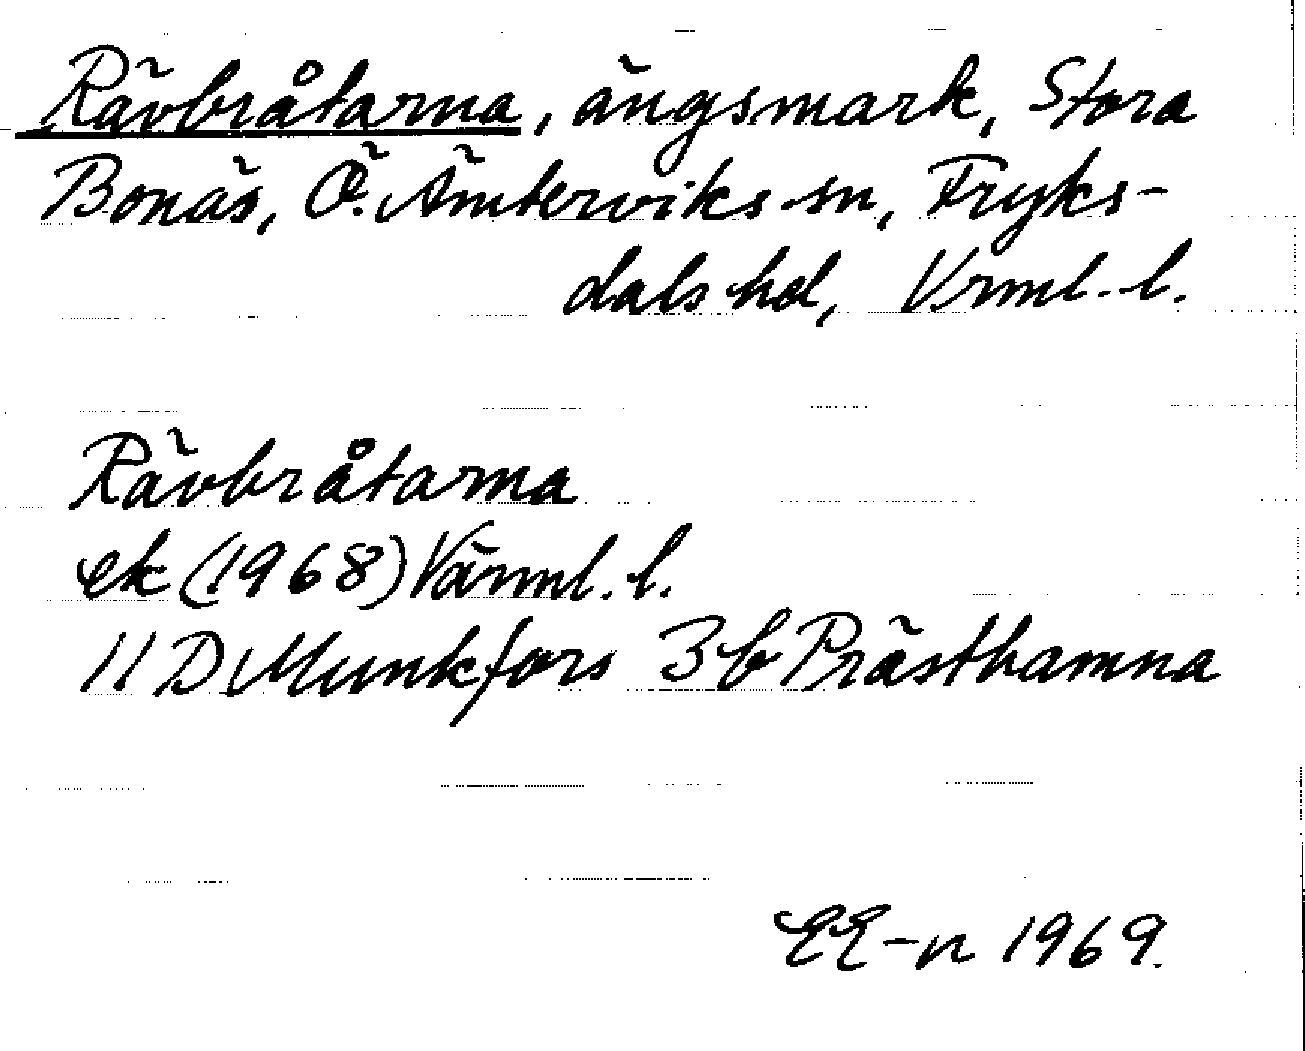 Rävbråtarna, ängsmark, Stora
Bonäs, Ö. Ämterviks sn, Fryks-
dals hd, Vrml. l.
Rävbråtarna
ek (1968) Värml. l.
11 D Munkfors 3 b Prästhamna
EE-n 1969.